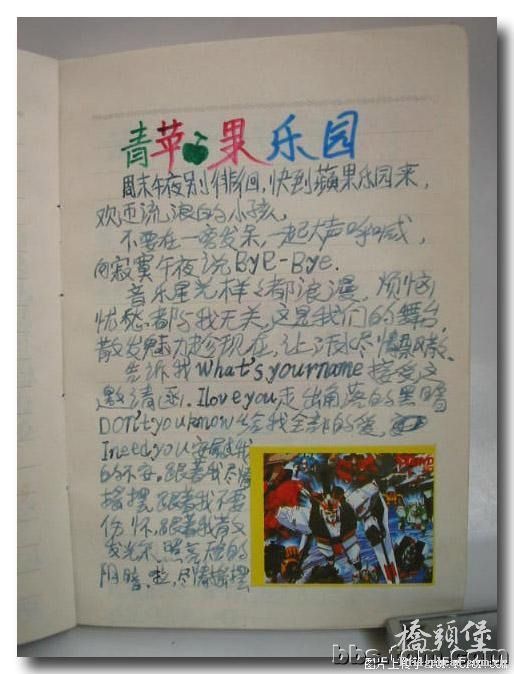 青苹果乐园
周末午夜别徘徊,快到蘋果乐园来,
欢迎流浪的小孩,
不要在一旁发呆,一起大声呼喊,
向寂寞午夜说BYE-Bye.
音乐星光样々都浪漫,烦恼
忧愁都与我无关,这是我们的舞台,
散发魅力趁现在,让汗水尽情飘散、
告诉我What's yourname接受这
邀请函.Iloveyou走出角落的黑暗
DON'tyouknow给我全部的爱,
Ineedyou安慰我
的不安.跟着我尽情
摇摆.跟着我不要
伤怀.跟着我
的
阴暗.尽情摇摆
橋頭堡